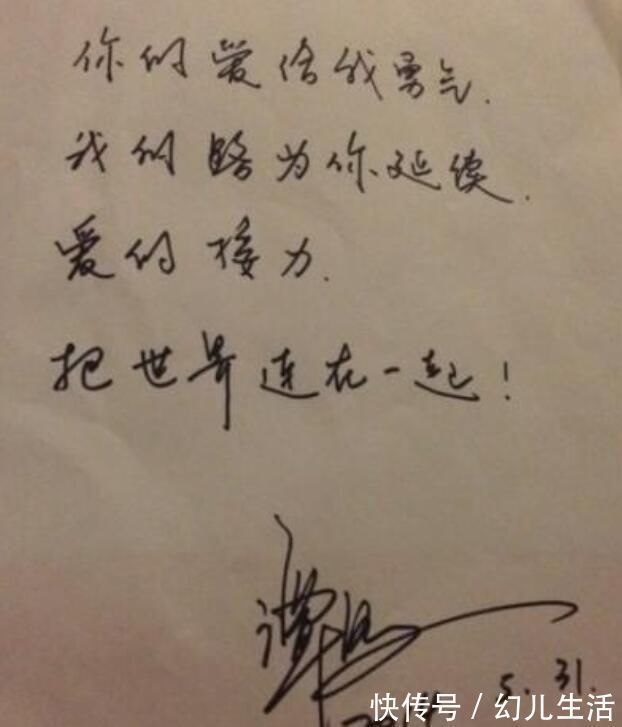 你的爱给我勇气.
我的路为你延续.
爱的接力.
把世界连在一起!
5.31.
快传号 / 幼儿生活